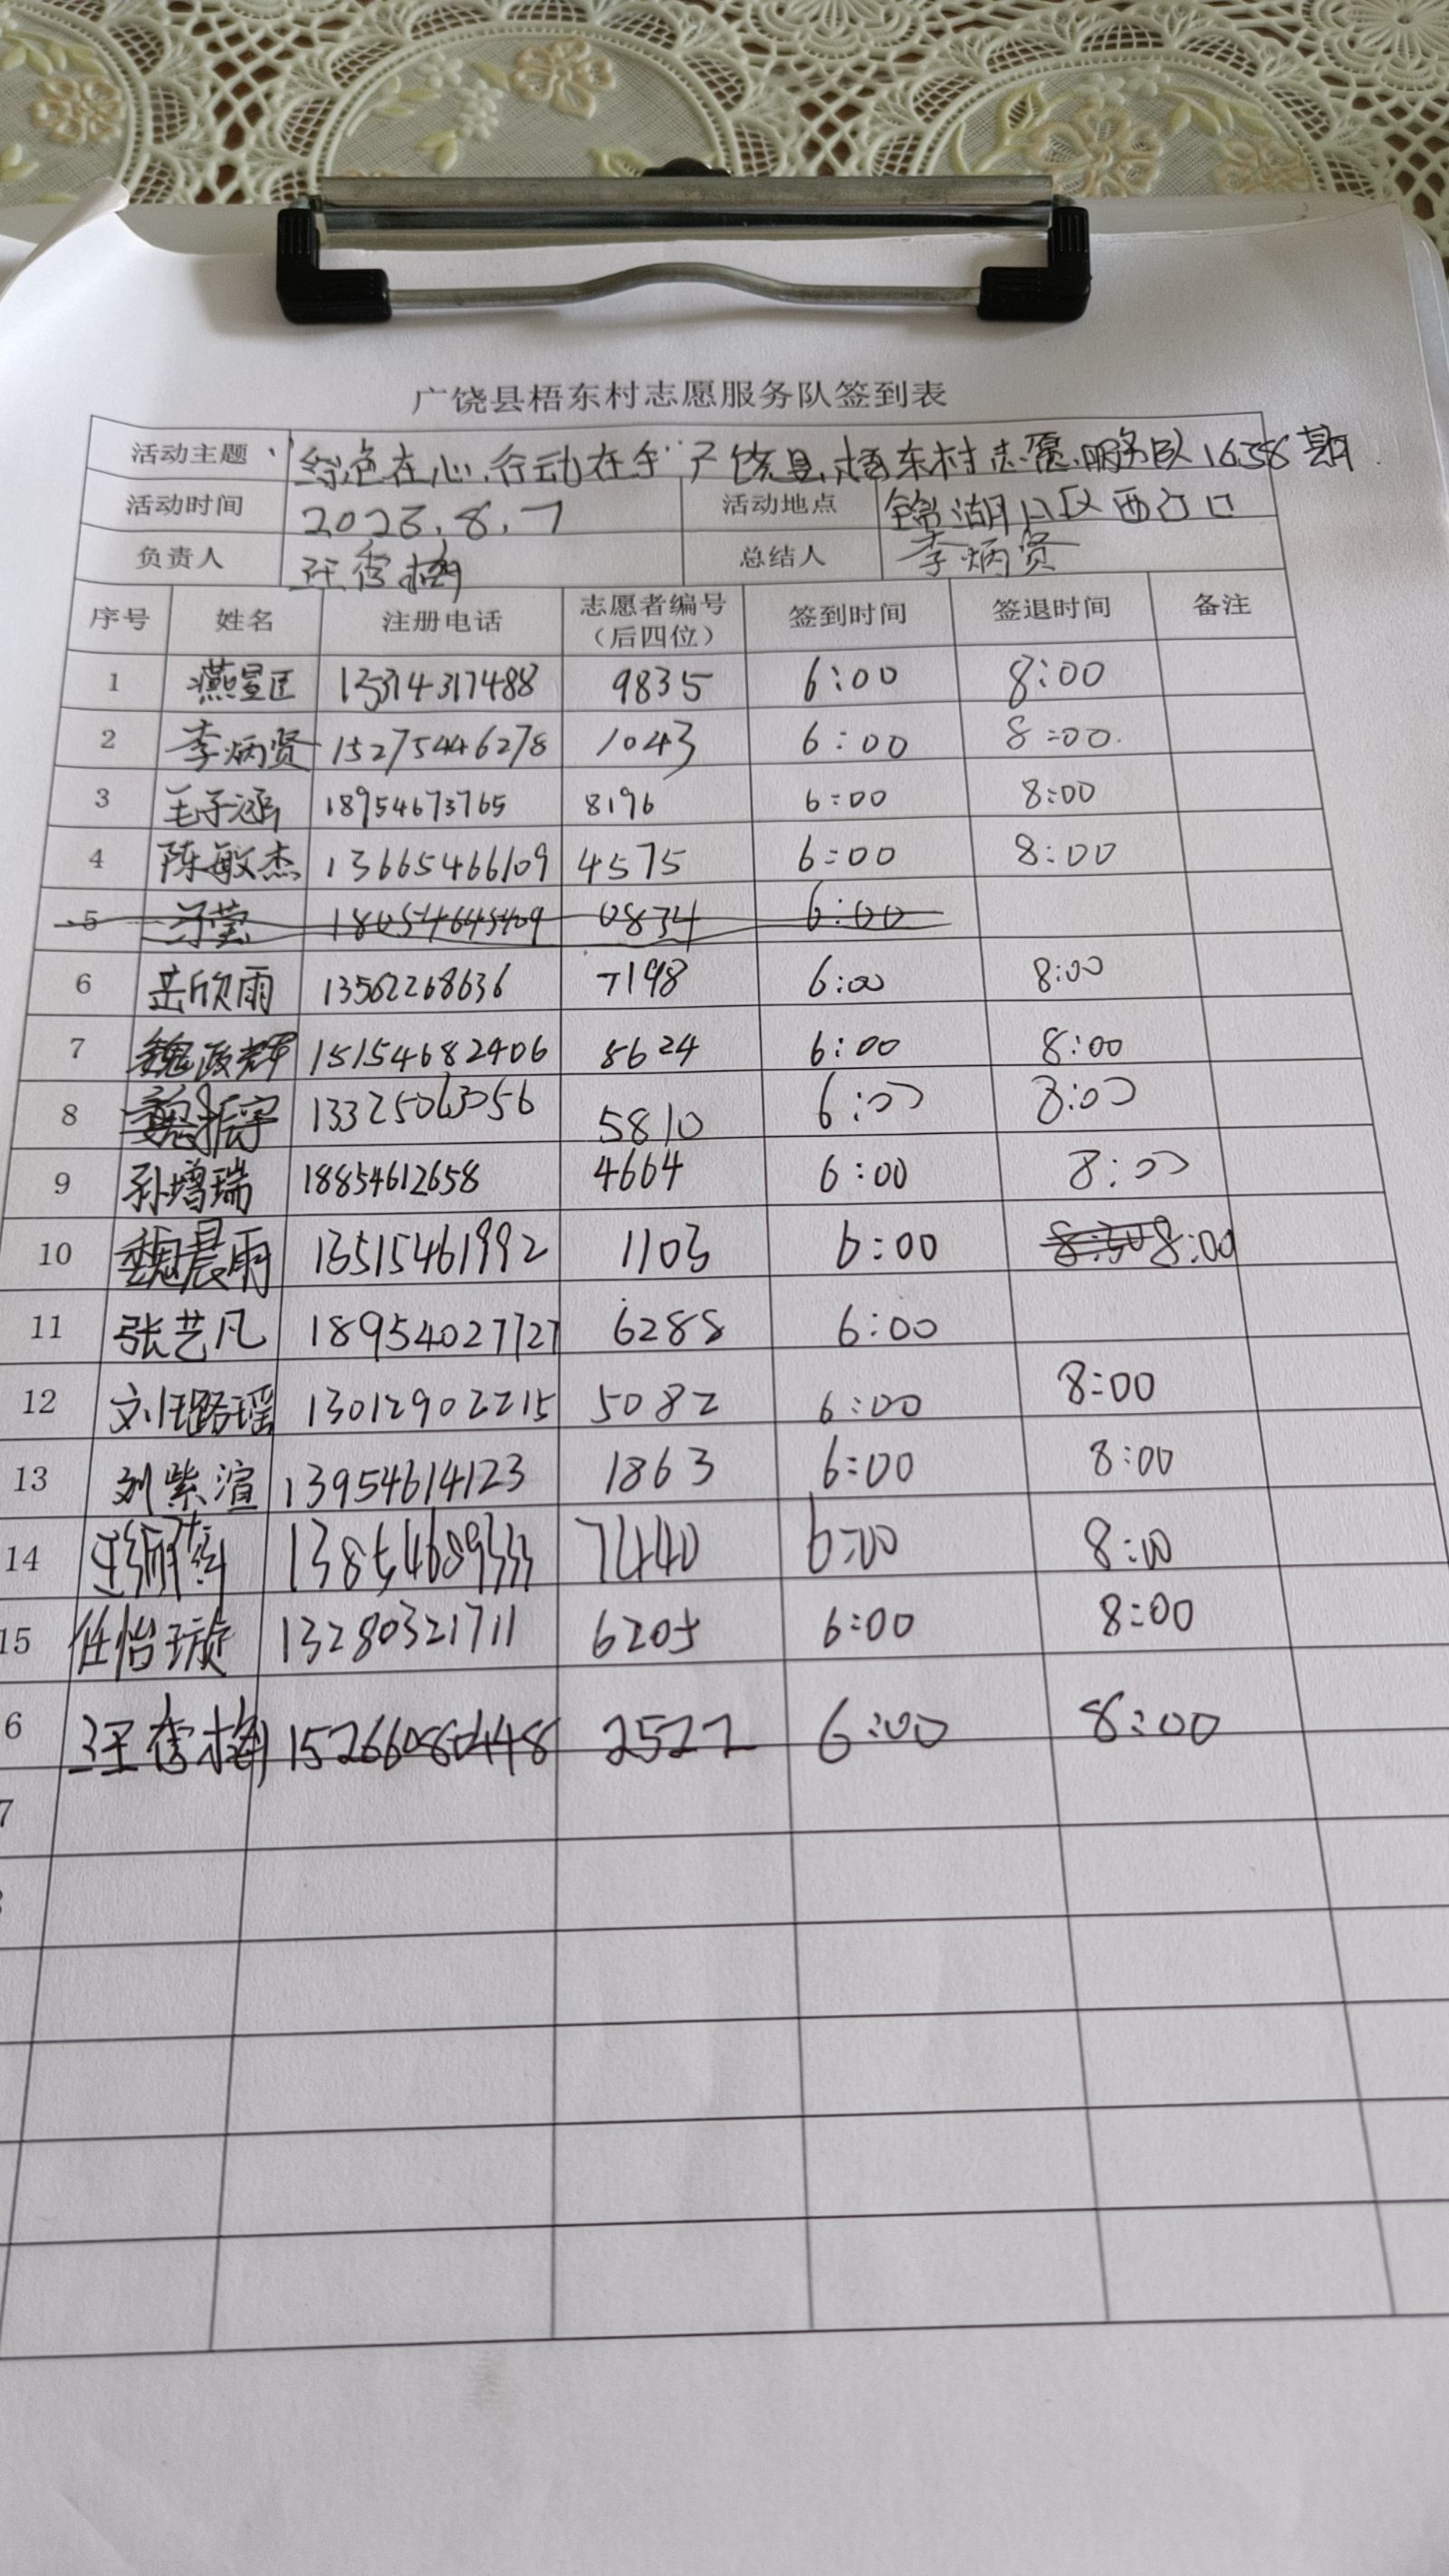 广饶县梧东村志愿服务队签到表
活动主题 “绿色在心,行动在手”广饶县梧东村志愿服务队1658期
活动时间 2023.8.7 活动地点 锦湖小区西门口
负责人 汪秀梅 总结人 李炳贤
序号 姓名 注册电话 志愿者编号（后四位） 签到时间 签退时间 备注
1 燕星匡 9835 6:00 8:00
2 李炳贤 15275446278 1043 6:00 8:00
3 王子涵 18954673765 8196 6:00 8:00
4 陈敏杰 13665466109 4575 6:00 8:00
5 0834 6:00
6 岳欣雨 13562268636 7198 6:00 8:00
7 魏政辉 15154682406 8624 6:00 8:00
8 魏振宇 13325063056 5810 6:00 8:00
9 孙增瑞 18854612658 4664 6:00 8:00
10 魏晨雨 13515461992 1103 6:00 8:00
11 张艺凡 18954027727 6288 6:00
12 刘璐瑶 13012902215 5082 6:00 8:00
13 刘紫渲 13954614123 1863 6:00 8:00
14 13854689333 7440 6:00 8:00
15 任怡璇 13280321711 6205 6:00 8:00
6 汪秀梅 2522 6:00 8:00
7